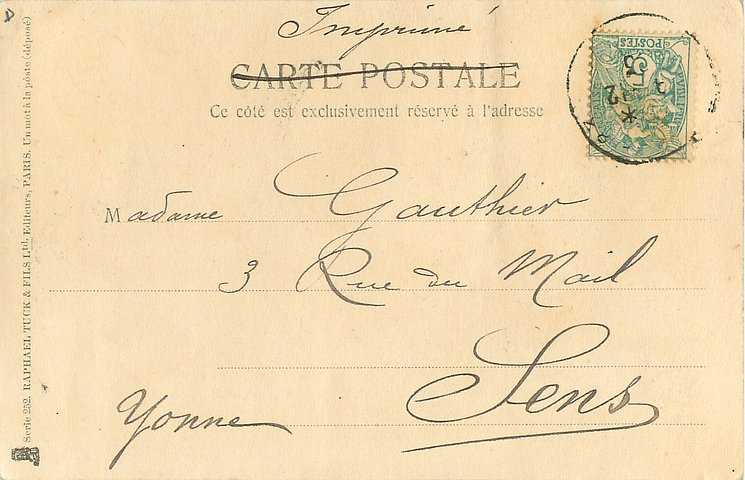 Imprimé
CARTE POSTALE
Ce côté est exclusivement réservé à l'adresse
POSTES
Madame Gauthier
3 Rue du Mail
Sens
Yonne
Serie 252. RAPHAEL TUCK & FILS Ltd. Editeurs, PARIS. Un mot à la poste (déposé)